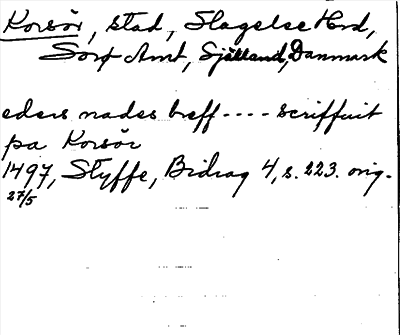 Korsør, stad, Slagelse Hrd,
Sorø Amt, Sjælland, Danmark
eders nades breff---- scriffuit
pa Korsör
1497, Styffe, Bidrag 4, s. 223. orig.
27/5